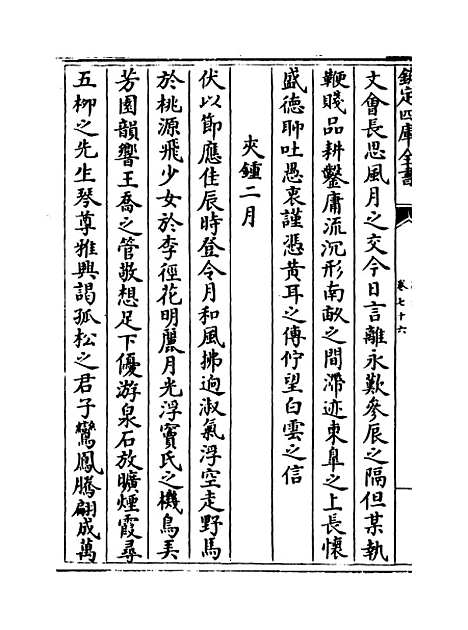 欽定四庫全書
卷七十六
文會長思風月之交今日言離永歎參辰之隔但某執
鞭賤品耕鑿庸流沉形南畝之間滯迹東臯之上長懷
盛德聊吐愚衷謹憑黄耳之傳佇望白雲之信
夾鍾二月
伏以節應佳辰時登令月和風拂逈淑氣浮空走野馬
於桃源飛少女於李徑花明麗月光浮竇氏之機鳥弄
芳園韻響王喬之管敬想足下優游泉石放曠煙霞尋
五栁之先生琴尊雅興謁孤松之君子鸞鳳騰翩成萬